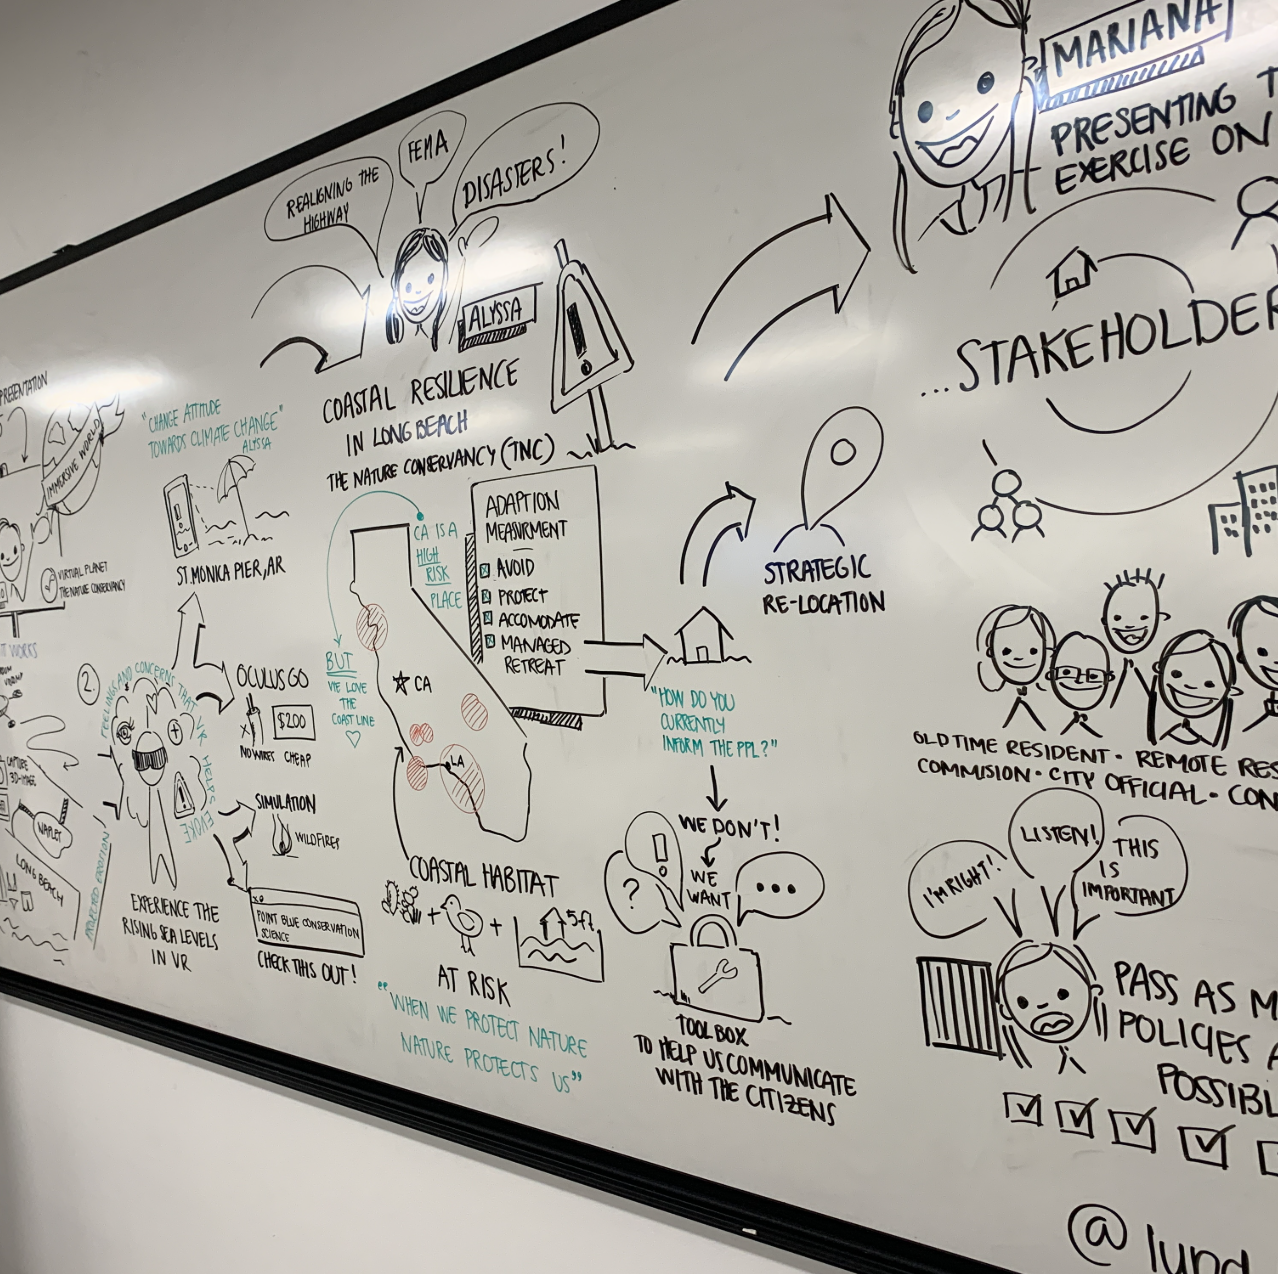 PRESENTATION
IMMERSIVE WORLD
VIRTUAL PLANET
THE NATURE CONSERVANCY
WORKS
CAPTURE
3D-IMAGE
NAPLES
LONG BEACH
"CHANGE ATTITUDE
TOWARDS CLIMATE CHANGE"
ALYSSA
ST. MONICA PIER, AR
2.
FEELINGS AND CONCERNS THAT VR HELPS EVOKE
OCULUS GO
$200
NO WIRES CHEAP
SIMULATION
WILDFIRES
POINT BLUE CONSERVATION
SCIENCE
CHECK THIS OUT!
EXPERIENCE THE
RISING SEA LEVELS
IN VR
REALIGNING THE
HIGHWAY
FEMA
DISASTERS!
ALYSSA
COASTAL RESILIENCE
IN LONG BEACH
THE NATURE CONSERVANCY (TNC)
CA IS A
HIGH
RISK
PLACE
BUT
WE LOVE
THE
COAST LINE
CA
LA
ADAPTION
MEASURMENT
AVOID
PROTECT
ACCOMODATE
MANAGED
RETREAT
COASTAL HABITAT
+ + 5ft
AT RISK
"WHEN WE PROTECT NATURE
NATURE PROTECTS US"
STRATEGIC
RE-LOCATION
"HOW DO YOU
CURRENTLY
INFORM THE PPL?"
WE DON'T!
WE
WANT
?
!
...
TOOLBOX
TO HELP US COMMUNICATE
WITH THE CITIZENS
MARIANA
PRESENTING T
EXERCISE ON
...STAKEHOLDER
OLD TIME RESIDENT - REMOTE RES
COMMISION - CITY OFFICIAL - CON
I'M RIGHT!
LISTEN!
THIS
IS
IMPORTANT
PASS AS M
POLICIES A
POSSIBL
@lund